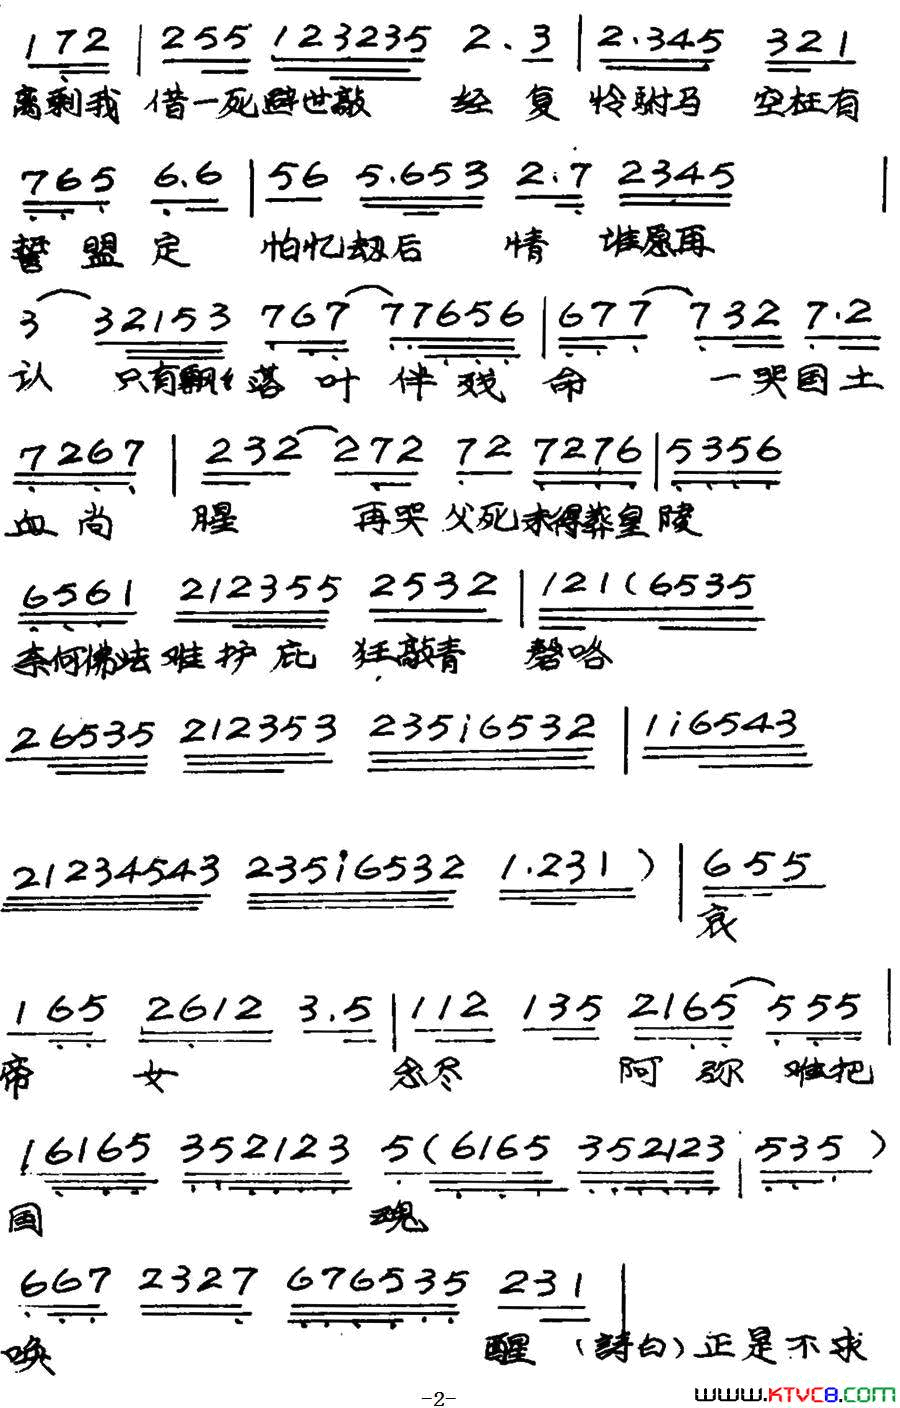 172 | 255 123235 2.3 | 2.345 321
离剩我 借一死避世敲 经 复 怜驸马 空枉有
765 6.6 | 56 5.653 2.7 2345 |
誓盟定 怕忆劫后 情 谁愿再
3 32153 767 77656 | 677 732 7.2
认 只有飘飘落叶伴残命 一哭国土
7267 | 232 272 72 7276 | 5356
血尚 腥 再哭父死未得葬皇陵
6561 212355 2532 | 121(6535
奈何佛法难护庇 狂敲青 磬咯
26535 212353 235i6532 | 1i6543
21234543 235i6532 1.231) | 655
哀
165 2612 3.5 | 112 135 2165 555 |
帝 女 念尽 阿弥难把
16165 352123 5(6165 352123 | 535)
国 魂
667 2327 676535 231 |
唤 醒 (詩白)正是不求
-2-
www.KTVC8.COM